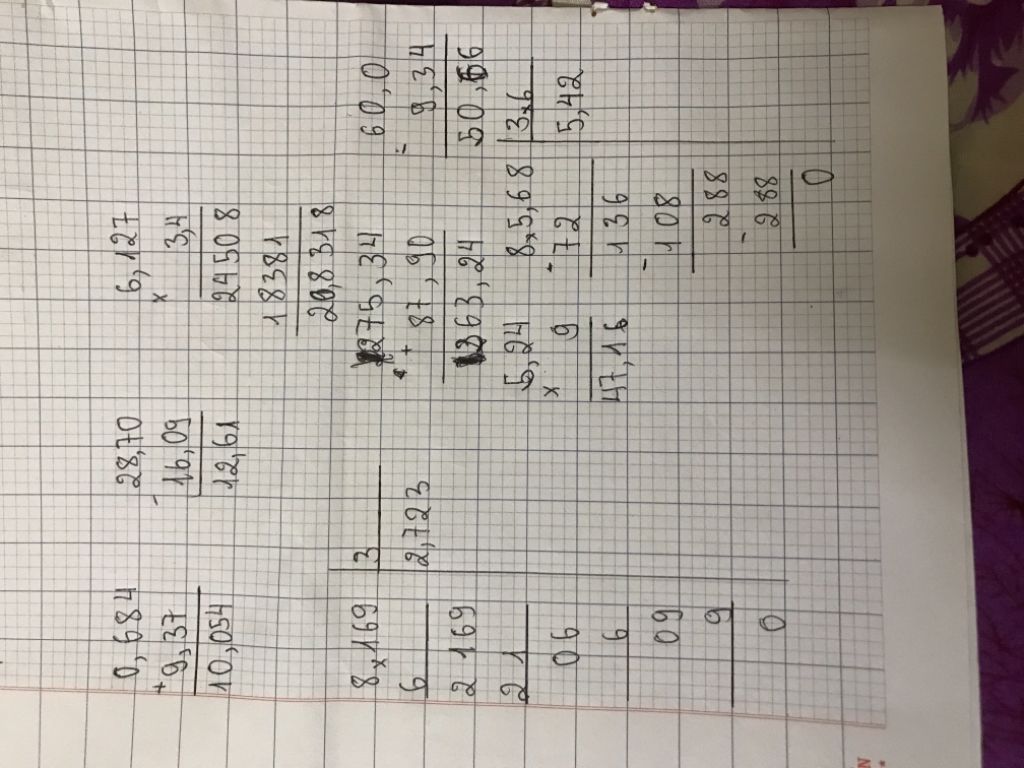 0,684
+ 9,37
10,054
28,70
- 16,09
12,61
6,127
x 3,4
24508
18381
20,8318
8,169 3
6 2,723
2 169
2 1
0 6
6
09
9
0
275,34
+ 87,90
363,24
60,0
- 9,34
50,66
5,24
x 9
47,16
8,5,68 3,6
- 72 5,42
136
- 108
288
- 288
0